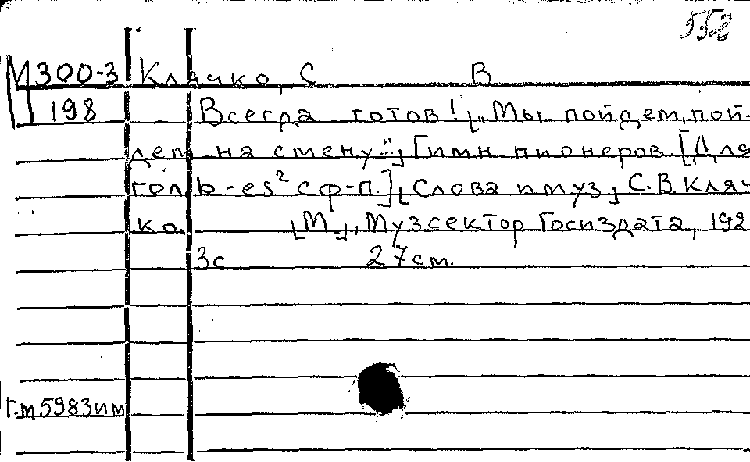 552
М300-3 Клячко, С В
198 Всегда готов! „Мы пойдем, пой-
дем на смену..." Гимн пионеров [Для
гол b-es² с ф-п.] Слова и муз. С.В. Кляч-
ко. [М.], Музсектор Госиздата, 192
3с 27см.
Гм5983им